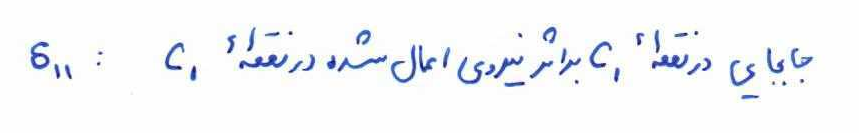 δ₁₁ : جابجایی در نقطهٔ C₁ براثر نیروی اعمال شده در نقطهٔ C₁